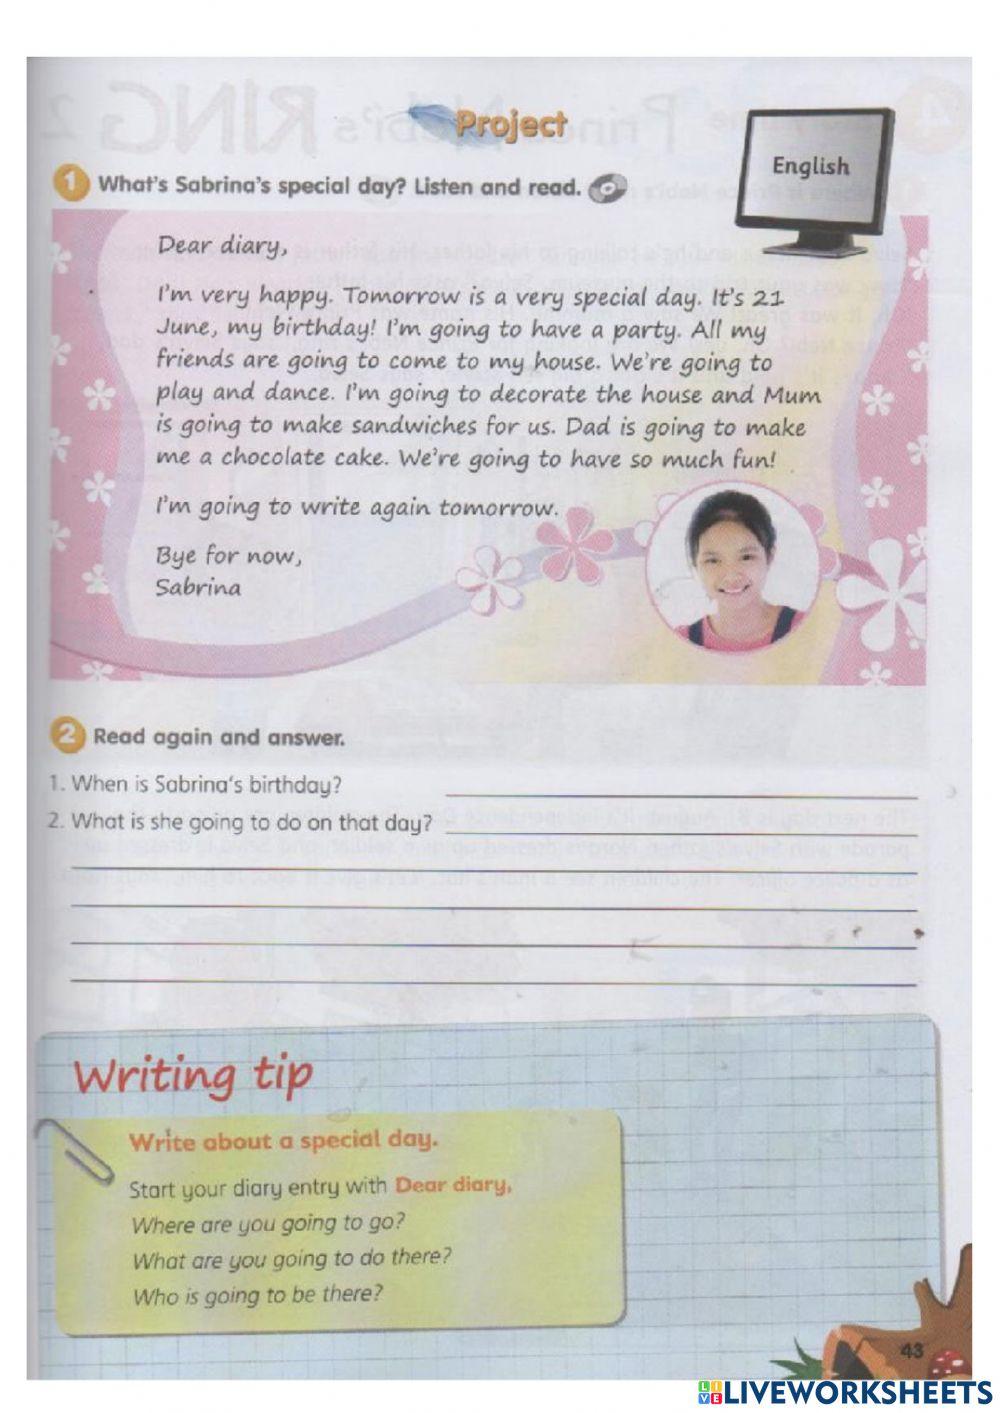 Project
English
1 What's Sabrina's special day? Listen and read.
Dear diary,
I'm very happy. Tomorrow is a very special day. It's 21
June, my birthday! I'm going to have a party. All my
friends are going to come to my house. We're going to
play and dance. I'm going to decorate the house and Mum
is going to make sandwiches for us. Dad is going to make
me a chocolate cake. We're going to have so much fun!
I'm going to write again tomorrow.
Bye for now,
Sabrina
2 Read again and answer.
1. When is Sabrina's birthday?
2. What is she going to do on that day?
Writing tip
Write about a special day.
Start your diary entry with Dear diary,
Where are you going to go?
What are you going to do there?
Who is going to be there?
43
LIVEWORKSHEETS